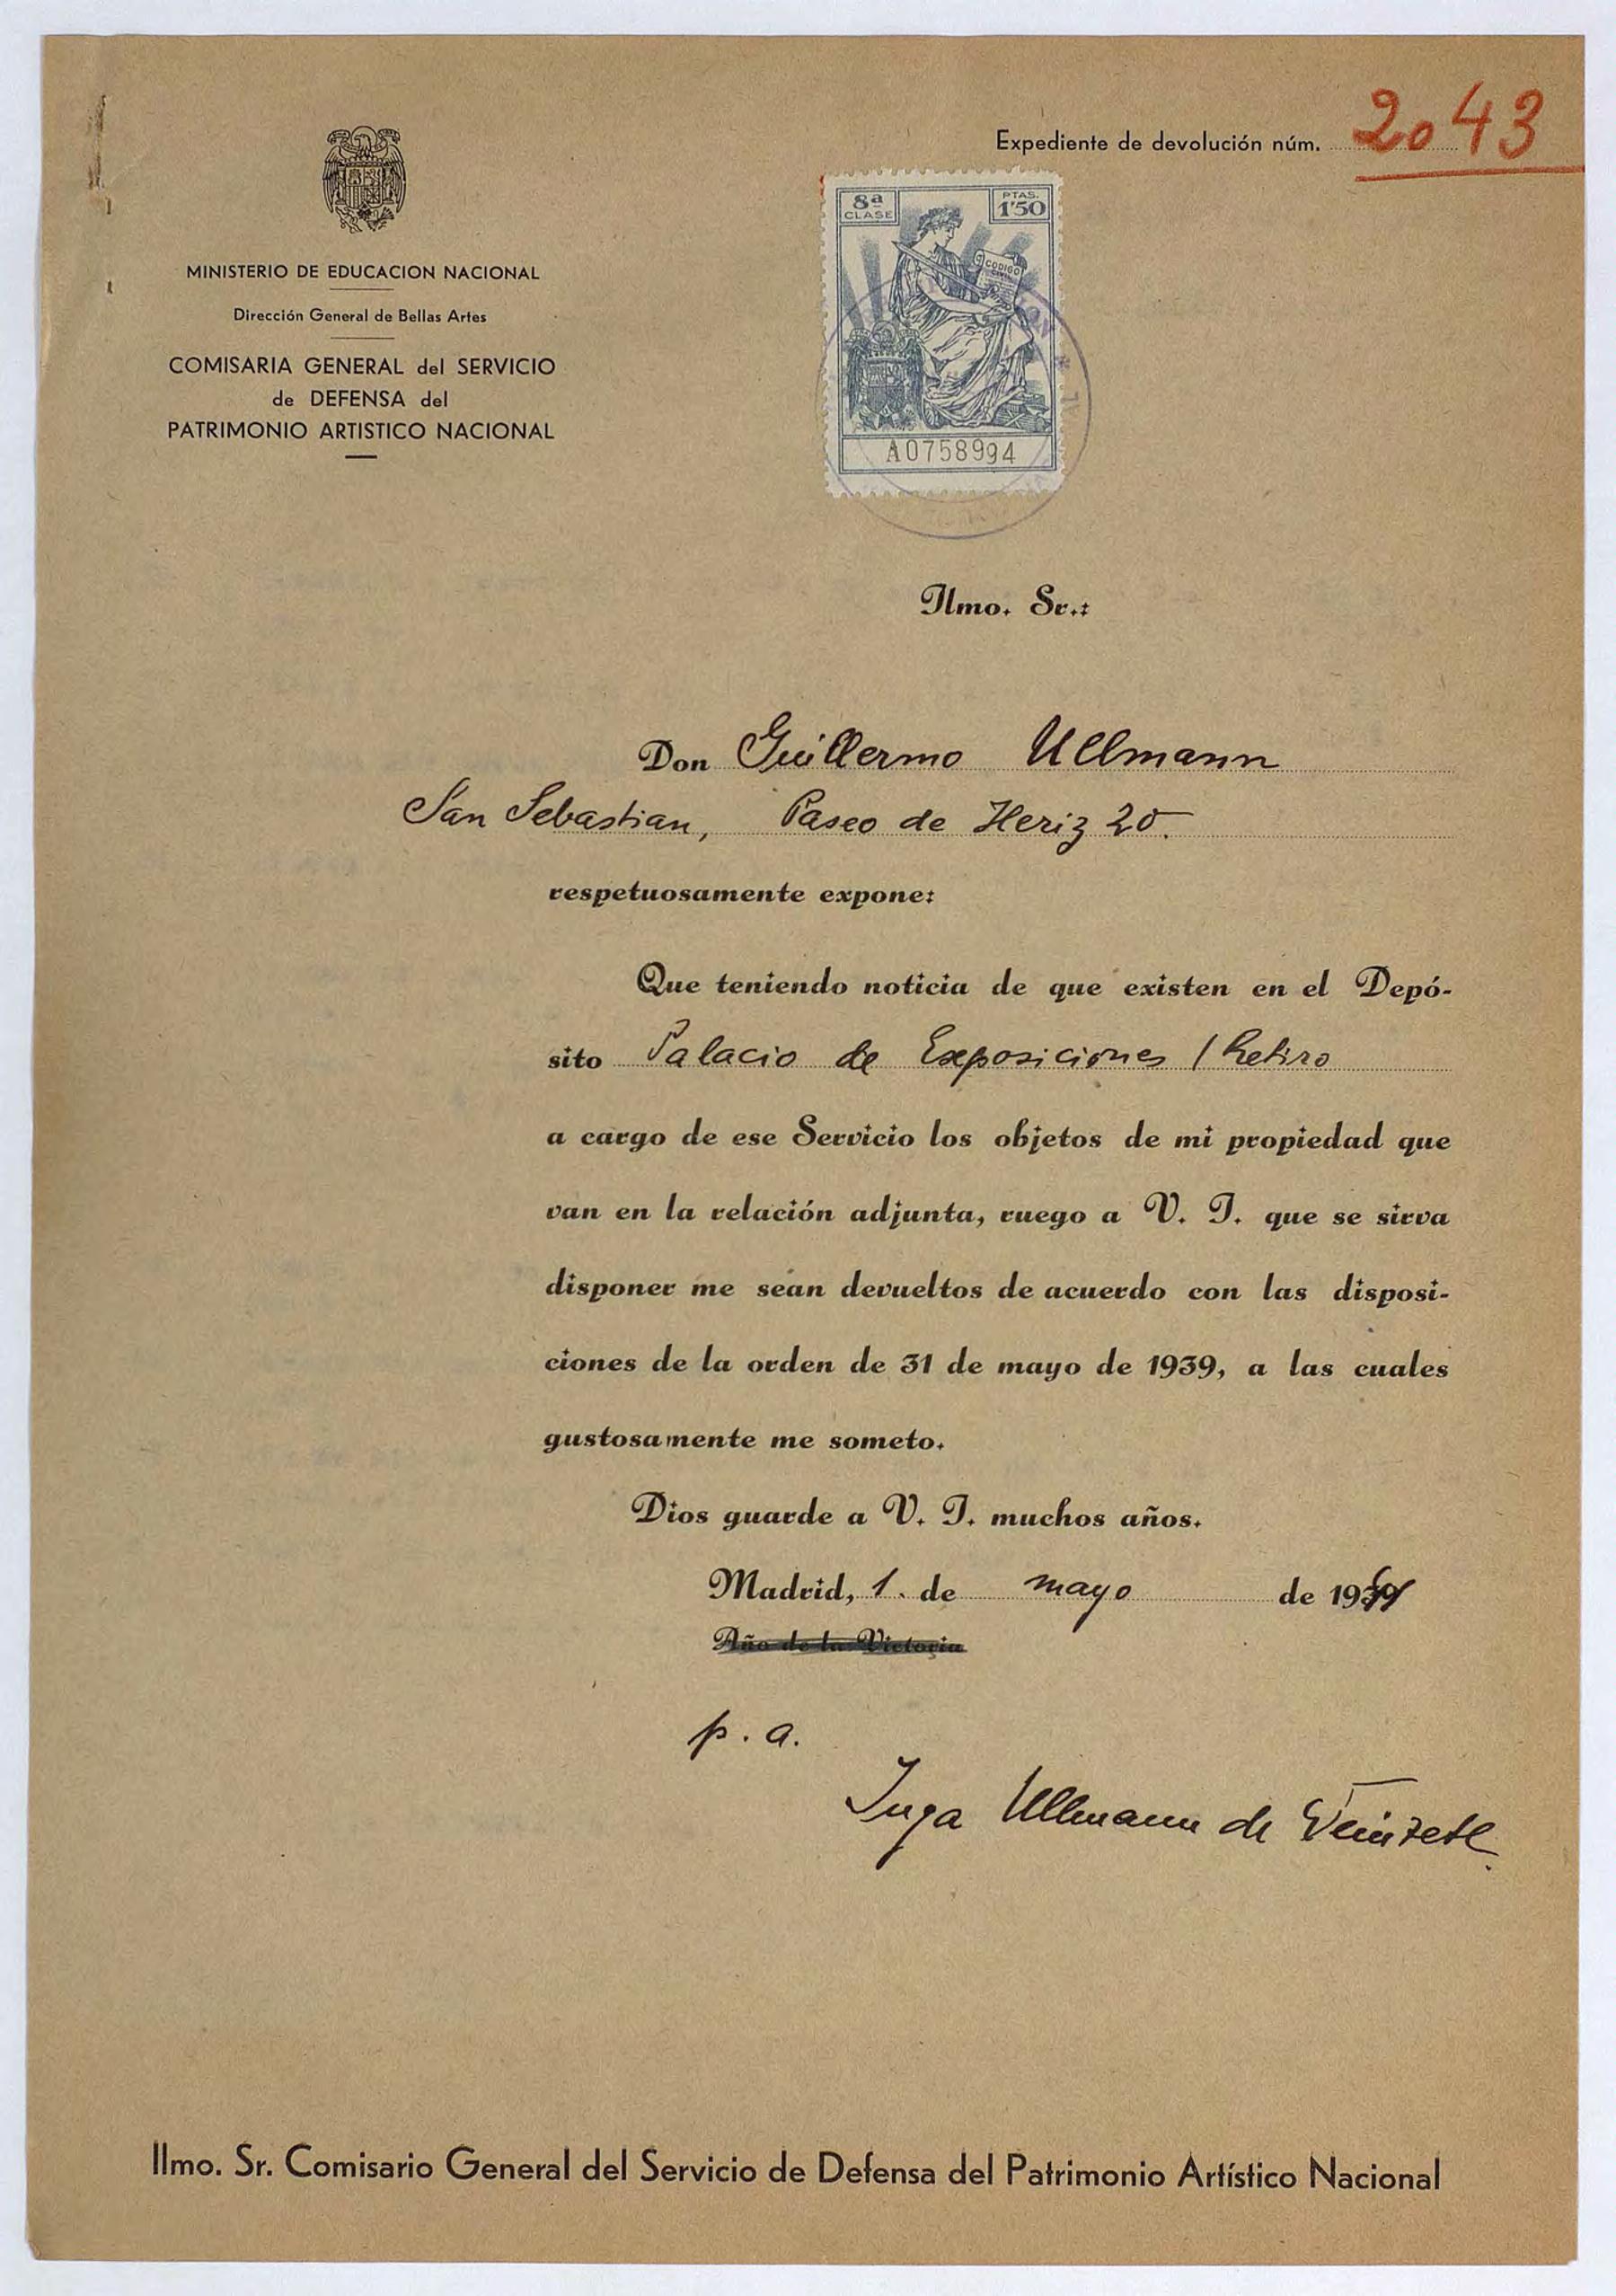 Expediente de devolución núm. 2043
8ª CLASE
PTAS. 1'50
CODIGO CIVIL
A0758994
MINISTERIO DE EDUCACION NACIONAL
Dirección General de Bellas Artes
COMISARIA GENERAL del SERVICIO
de DEFENSA del
PATRIMONIO ARTISTICO NACIONAL
Ilmo. Sr.:
Don Guillermo Ullmann
San Sebastian, Paseo de Heriz 20.
respetuosamente expone:
Que teniendo noticia de que existen en el Depó-
sito Palacio de Exposiciones / Retiro
a cargo de ese Servicio los objetos de mi propiedad que
van en la relación adjunta, ruego a V. I. que se sirva
disponer me sean devueltos de acuerdo con las disposi-
ciones de la orden de 31 de mayo de 1939, a las cuales
gustosamente me someto.
Dios guarde a V. I. muchos años.
Madrid, 1. de mayo de 19
Año de la Victoria
p. a.
Inga Ullmann de
Ilmo. Sr. Comisario General del Servicio de Defensa del Patrimonio Artístico Nacional